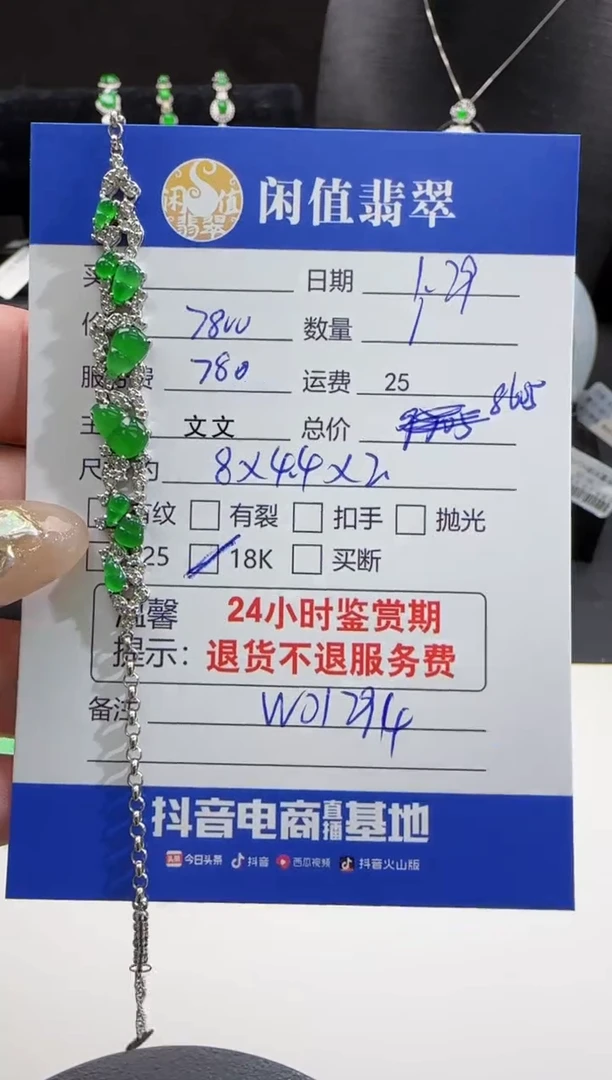 闲值翡翠
闲值翡翠
日期 1.29
7800 数量 1
780 运费 25
文文 总价 8605
8×4.4×2
纹 有裂 扣手 抛光
25 18K 买断
温馨 24小时鉴赏期
提示: 退货不退服务费
备注 W01294
抖音电商直播基地
头条 今日头条 抖音 西瓜视频 抖音火山版